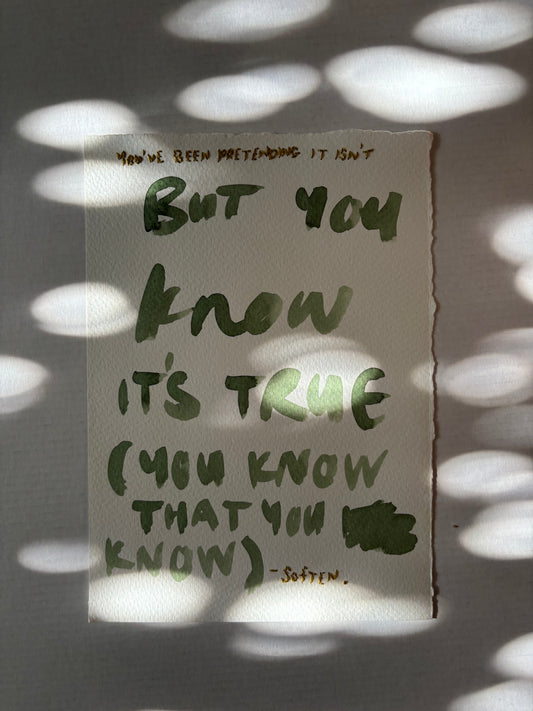 YOU'VE BEEN PRETENDING IT ISN'T
BUT YOU
KNOW
IT'S TRUE
(YOU KNOW
THAT YOU
KNOW)
- SOFTEN.